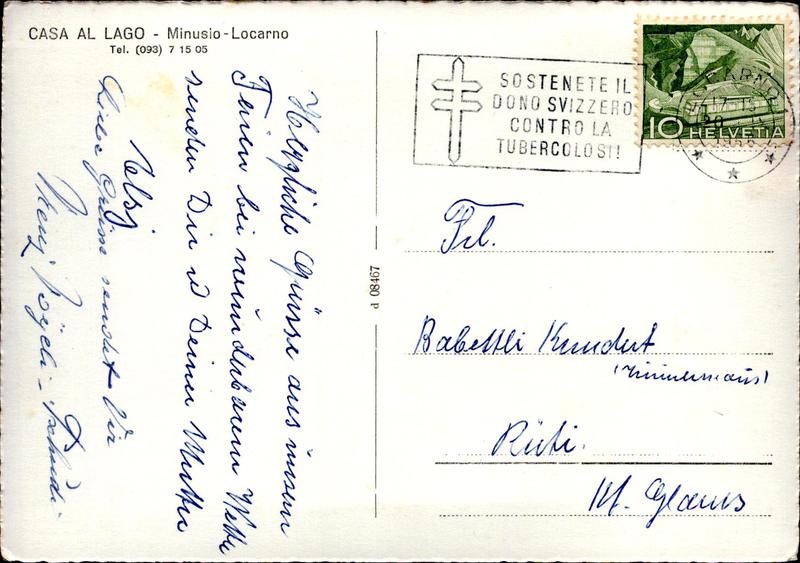 CASA AL LAGO - Minusio-Locarno
Tel. (093) 7 15 05
Herzliche Grüsse aus unsern
Ferien bei wunderbarem Wetter
senden Dir u Deiner Mutter
Nelsj
Liebe Grüsse sendet Dir
Vögeli - Tschudi
d 08467
SOSTENETE IL
DONO SVIZZERO
CONTRO LA
TUBERCOLOSI!
10 HELVETIA
LOCARNO
Frl.
Babettli Kundert
Rüti.
Kt. Glarus